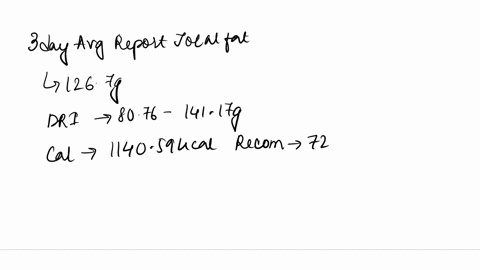 3 day Avg Report Total fat
↳ 126.7g
DRI → 80.76 - 141.17g
Cal → 1140.59 kcal Recom → 72